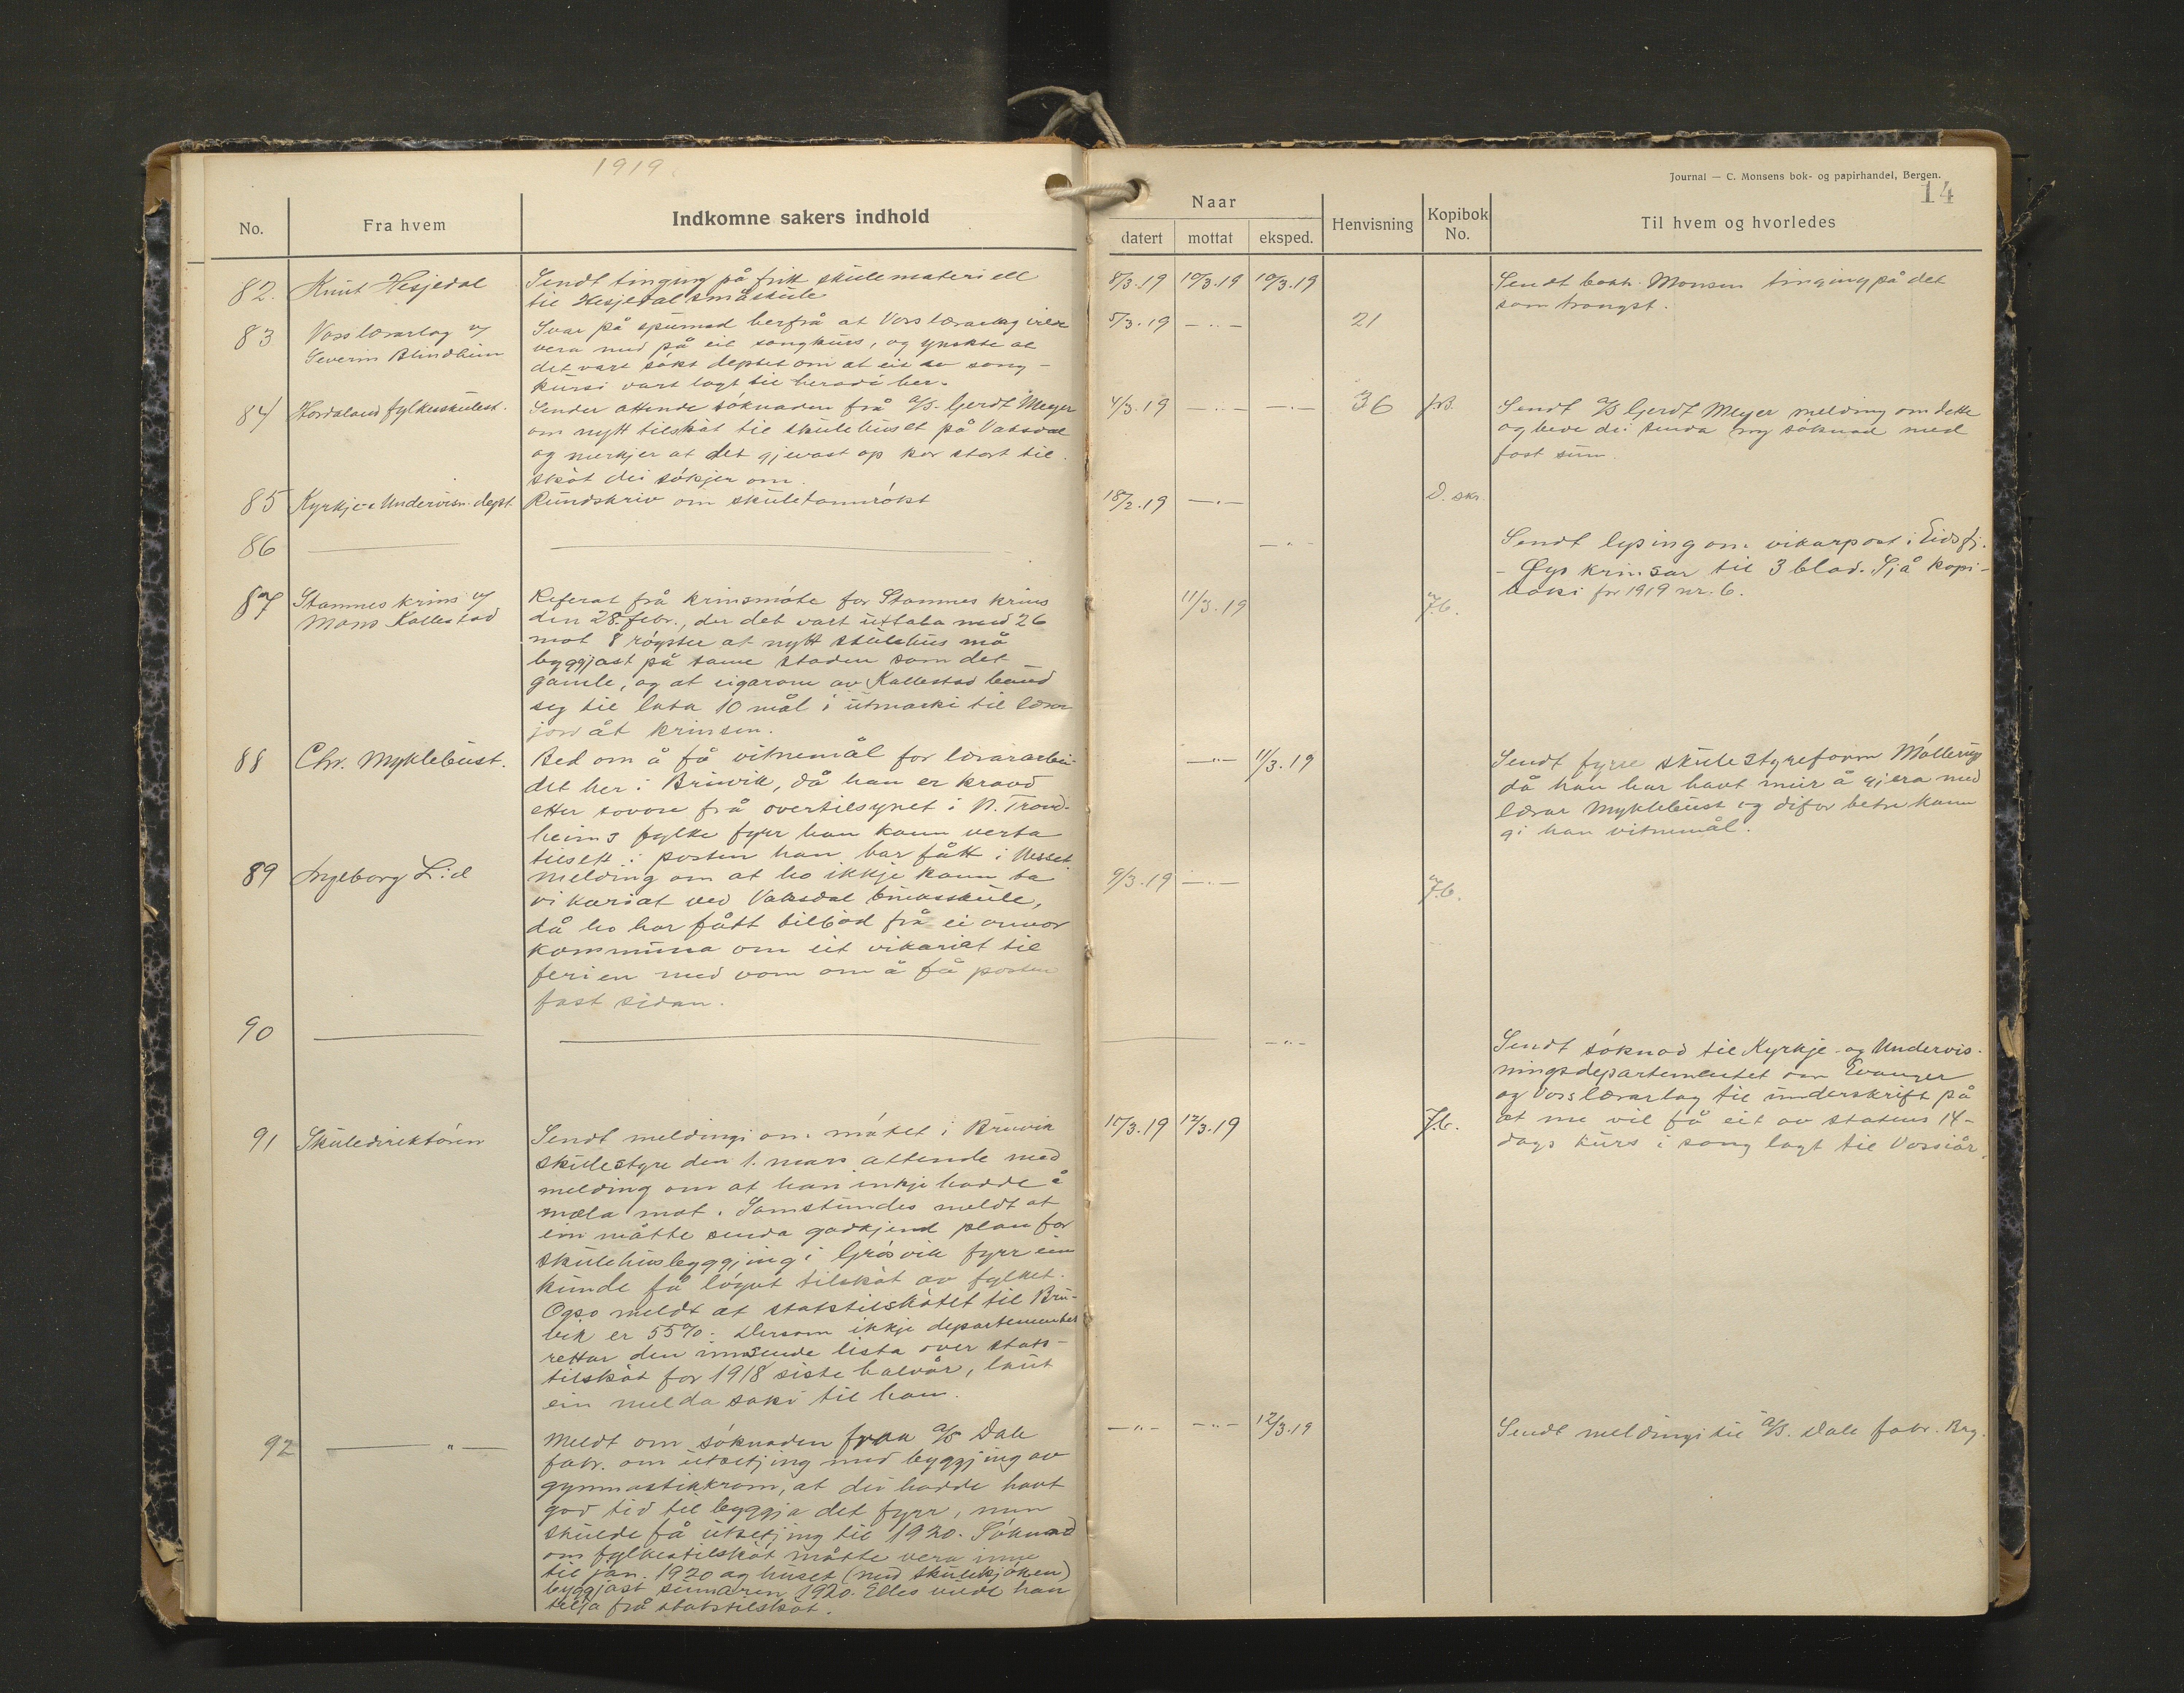 1919
Journal — C. Monsens bok- og papirhandel, Bergen.
14
No. Fra hvem Indkomne sakers indhold
Naar
datert mottat eksped. Henvisning Kopibok No. Til hvem og hvorledes
82. Knut Hesjedal
Sendt tinging på fritt skulemateriell
til Hesjedal småskule
8/3.19 10/3.19 10/3.19
Sendt bokh. Monsen tinging på det
som trongst.
83 Voss lærarlag og
Severin Blindheim
Svar på spurnad herfrå at Voss lærarlag
vera med på eit songkurs, og ynskte at
det vart søkt deptet om at eit av song-
kursi vart lagt til heradi her.
5/3.19 — " — 21
84 Hordaland fylkesskulest.
Sender attende søknaden frå A/S. Gerdt Meyer
om nytt tilskot til skulehuset på Vaksdal
og merkjer at det gjevast op kor stort til-
skot dei søkjer om.
4/3.19 — " — — " — 36
Sendt A/S Gerdt Meyer melding om dette
og bede dei senda ny søknad med
fast sum.
85 Kyrkje- & Undervisn. dept.
Rundskriv om skuletannrøkt
18/2.19 — " — D. skr.
86
— " —
Sendt lysing om vikarpost i Eidsfj.
- Øyo krinsar til 3 blad. Sjå kopi-
boki for 1919 nr. 6.
87 Stamnes krins og
Mons Kallestad
Referat frå krinsmøte for Stamnes krins
den 28. febr., der det vart uttala med 26
mot 8 røyster at nytt skulehus må
byggjast på same staden som det
gamle, og at eigarane av Kallestad baud
seg til lata 10 mål i utmarki til lærar
jord åt krinsen.
11/3.19
88 Chr. Myklebust.
Bed om å få vitnemål for lærararbei-
det her i Bruvik, då han er kravd
etter sovore frå overtilsynet i N. Trond-
heims fylke fyrr han kann verta
tilsett i posten han har fått i
— " — 11/3.19
Sendt fyrre skulestyreform
då han har havt meir å gjera med
lærar Myklebust og difor betre kann
gi han vitnemål.
89 Ingeborg Lid
Melding om at ho ikkje kann ta
vikariat ved Vaksdal
då ho har fått tilbod frå ei annor
kommuna om eit vikariat til
ferien med von om å få posten
fast sidan.
9/3.19 — " —
90
— " —
Sendt søknad til Kyrkje- og Undervis-
ningsdepartementet om Evanger
og Voss lærarlag til underskrift på
at me vil få eit av statens 14-
dags kurs i song lagt til Voss i år.
91 Skuledirektøren
Sendt meldingi om møtet i Bruvik
skulestyre den 1. mars attende med
melding om at han inkje hadde å
mæla mot. Samstundes meldt at
ein måtte senda godkjend plan for
skulehusbyggjing i Grøsvik fyrr ein
kunde få løyvt tilskot av fylket.
Ogso meldt at statstilskotet til Bru-
vik er 55%. Dersom ikkje departementet
rettar den innsende lista over stats-
tilskot for 1918 siste halvår, laut
ein melda saki til han.
10/3.19 12/3.19
92 — " —
Meldt om søknaden fraa A/S Dale
fabr. om utsetjing med byggjing av
gymnastikkrom, at dei hadde havt
god tid til byggja det fyrr, men
skulde få utsetjing til 1920. Søknad
om fylkestilskot måtte vera inne
til jan. 1920 og huset (med skulekjøken)
byggjast sumaren 1920. Elles vilde han
frå statstilskot.
— " — — " — 12/3.19
Sendt meldingi til A/S. Dale fabr. Brg.